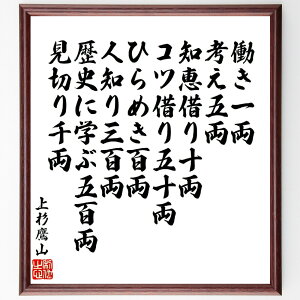 働き一両
考え五両
知恵借り十両
コツ借り五十両
ひらめき百両
人知り三百両
歴史に学ぶ五百両
見切り千両
上杉鷹山